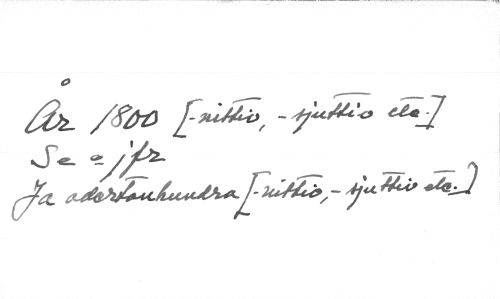 År 1800 [-nittio, -sjuttio etc.]
Se o jfr
Ja adertonhundra [-nittio, -sjuttio etc.]